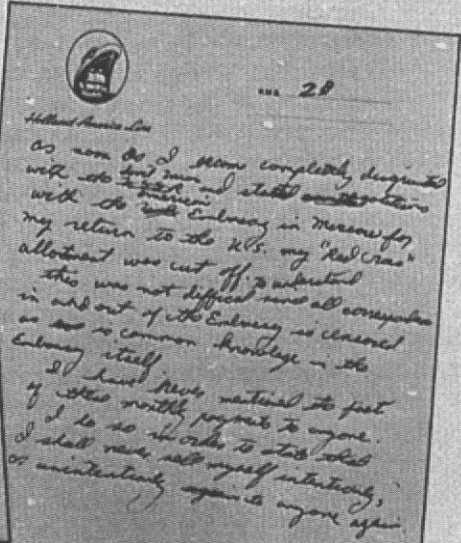 Holland-America Line
28
as soon as I became completely disgusted
with the Sovit Union and started negotiations
with the American Embassy in Moscow for
my return to the U.S. my "Red Cross"
allotment was cut off.
this was not diffical to understand since all correspondence
in and out of the Embassy is censored
as is common knowledge in the
Embassy itself.
I have never mentioned the fact
of these monthly payments to anyone.
I do so in order to state that
I shall never sell myself intentionly,
or unintentionly to anyone again.